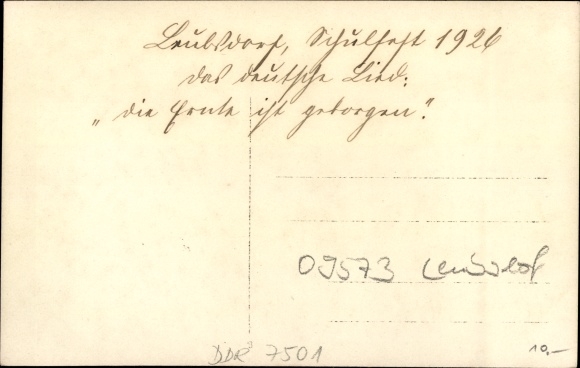 Leubsdorf, Schulfest 1926
das deutsche Lied:
„die Ernte ist geborgen".
09573 Leubsdof
DDR 7501
10,-